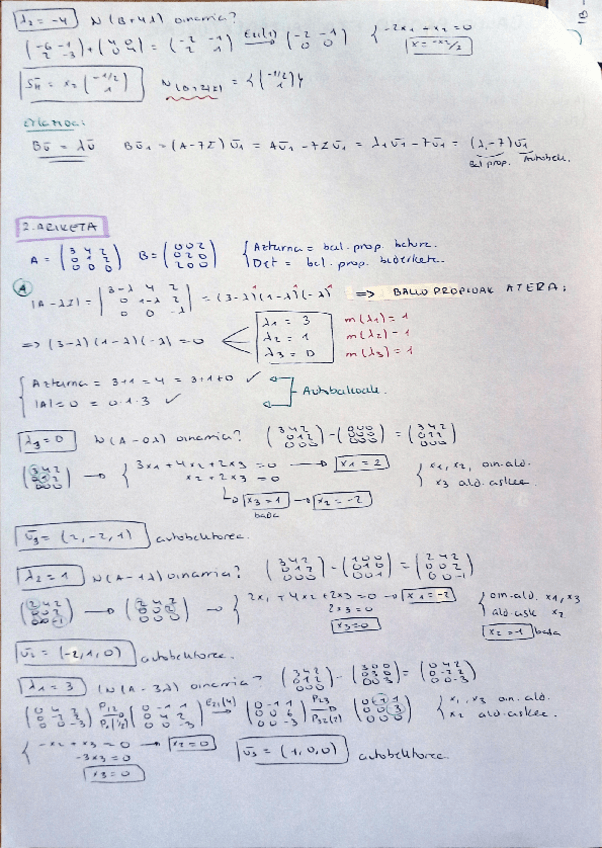 λ₂ = -4 N(B+4λ) oinarria?
(-6 -1 / 2 -3) + (4 0 / 0 4) = (-2 -1 / 2 1) E₂₁(1) → (-2 -1 / 0 0) { -2x₁ + x₂ = 0 / x = -x₂/2
S_H = x₂ (-1/2 / 1) N(B+2I) = < (-1/2 / 1) >
Bū = λū Bū₁ = (A-7I)ū₁ = Aū₁ - 7Iū₁ = λ₁ū₁ - 7ū₁ = (λ₁-7)ū₁
bal.prop. Autobek.
2. ARIKETA
A = (3 4 2 / 0 1 2 / 0 0 0) B = (0 0 2 / 0 2 0 / 2 0 0) { Aztarna = bal. prop. batura. / Det = bal. prop. biderketa.
A
|A-λI| = |3-λ 4 2 / 0 1-λ 2 / 0 0 -λ| = (3-λ)(1-λ)(-λ) => BALIO PROPIOAK ATERA:
=> (3-λ)(1-λ)(-λ) = 0 λ₁ = 3 m(λ₁) = 1
λ₂ = 1 m(λ₂) = 1
λ₃ = 0 m(λ₃) = 1
{ Aztarna = 3+1 = 4 = 3+1+0 ✓
|A| = 0 = 0·1·3 ✓ Autobalioak.
λ₃ = 0 N(A-0λ) oinarria? (3 4 2 / 0 1 2 / 0 0 0) - (0 0 0 / 0 0 0 / 0 0 0) = (3 4 2 / 0 1 2 / 0 0 0)
(3 4 2 / 0 1 2 / 0 0 0) → { 3x₁ + 4x₂ + 2x₃ = 0 → x₁ = 2 { x₁, x₂, oin.ald.
x₂ + 2x₃ = 0 x₃ ald.askea.
x₃ = 1 → x₂ = -2
bada
ū₃ = (2, -2, 1) autobektorea.
λ₂ = 1 N(A-1λ) oinarria? (3 4 2 / 0 1 2 / 0 0 0) - (1 0 0 / 0 1 0 / 0 0 1) = (2 4 2 / 0 0 2 / 0 0 -1)
(2 4 2 / 0 0 2 / 0 0 -1) → (2 4 2 / 0 0 2 / 0 0 0) → { 2x₁ + 4x₂ + 2x₃ = 0 → x₁ = -2 { oin.ald. x₁, x₃
2x₃ = 0 ald.ask x₂
x₃ = 0 x₂ = 1 bada
ū₂ = (-2, 1, 0) autobektorea.
λ₁ = 3 N(A-3λ) oinarria? (3 4 2 / 0 1 2 / 0 0 0) - (3 0 0 / 0 3 0 / 0 0 3) = (0 4 2 / 0 -2 2 / 0 0 -3)
(0 4 2 / 0 -2 2 / 0 0 -3) P₁₂ → P₁(1/2) (0 -1 1 / 0 4 2 / 0 0 -3) E₂₁(4) → (0 -1 1 / 0 0 6 / 0 0 -3) P₂₃ → (0 -1 1 / 0 0 3 / 0 0 0) { x₁, x₃ oin.ald.
x₂ ald.askea.
{ -x₂ + x₃ = 0 → x₂ = 0 ū₃ = (1, 0, 0) autobektorea.
-3x₃ = 0
x₃ = 0